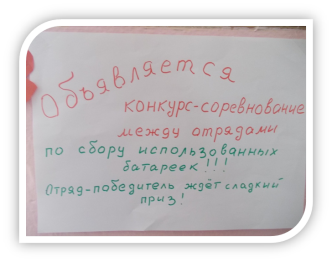 Объявляется
конкурс-соревнование
между отрядами
по сбору использованных
батареек!!!
Отряд-победитель ждёт сладкий
приз!